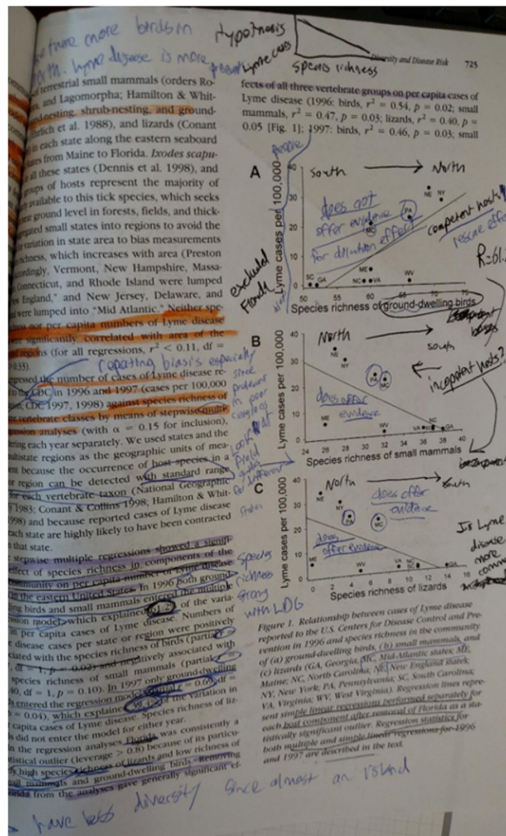 there more birds in
hypothesis
Lyme disease is more prevalent
Lyme cases
species richness
Diversity and Disease Risk 725
terrestrial small mammals (orders Ro-
and Lagomorpha; Hamilton & Whit-
nesting, shrub-nesting, and ground-
Ehrlich et al. 1988), and lizards (Conant
in each state along the eastern seaboard
ates from Maine to Florida. Ixodes scapu-
all these states (Dennis et al. 1998), and
oups of hosts represent the majority of
available to this tick species, which seeks
ear ground level in forests, fields, and thick-
pated small states into regions to avoid the
variation in state area to bias measurements
richness, which increases with area (Preston
ordingly, Vermont, New Hampshire, Massa-
Connecticut, and Rhode Island were lumped
England," and New Jersey, Delaware, and
were lumped into "Mid Atlantic." Neither spe-
nor per capita numbers of Lyme disease
significantly correlated with area of the
regions (for all regressions, r² < 0.11, df =
repeating biasis especially
the number of cases of Lyme disease re-
CDC in 1996 and 1997 (cases per 100,000
CDC 1997, 1998) against species richness of
vertebrate classes by means of stepwise multiple
analyses (with α = 0.15 for inclusion),
ering each year separately. We used states and the
ultistate regions as the geographic units of mea-
nt because the occurrence of host species in a
or region can be detected with standard range
each vertebrate taxon (National Geographic
1983; Conant & Collins 1998; Hamilton & Whit-
1998) and because reported cases of Lyme disease
each state are highly likely to have been contracted
that state.
stepwise multiple regressions showed a signif-
effect of species richness in components of the
community on per capita number of Lyme disease
in the eastern United States. In 1996 both ground-
ing birds and small mammals entered the multiple
ession model, which explained
of the varia-
in per capita cases of Lyme disease. Numbers of
disease cases per state or region were positively
ciated with the species richness of birds (partial
df = 1, p = 0.02) and negatively associated with
species richness of small mammals (partial
df = 1, p = 0.10). In 1997 only ground-dwelling
entered the regression model
= 0.04), which explained
of the variation in
capita cases of Lyme disease. Species richness of liz-
ds did not enter the model for either year.
In the regression analyses, Florida was consistently a
tistical outlier (leverage > 0.8) because of its particu-
ly high species richness of lizards and low richness of
all mammals and ground-dwelling birds. Removing
Florida from the analyses gave generally significant ef-
have less diversity since almost an island
species
richness
strong
with LDG
fects of all three vertebrate groups on per capita cases of
Lyme disease (1996: birds, r² = 0.54, p = 0.02; small
mammals, r² = 0.47, p = 0.03; lizards, r² = 0.40, p =
0.05 [Fig. 1]; 1997: birds, r² = 0.46, p = 0.03; small
people
A
South North
Lyme cases per 100,000
40
30
20
10
0
NE NY
PA
does not
offer evidence
for dilution effect
competent hosts
rescue effect
ME
SC GA NC VA WV
50 55 60 65 70 75 80
Species richness of ground-dwelling birds
excluded
Florida
B
North South
Lyme cases per 100,000
40
30
20
10
0
NE
NY
PA MC
does offer
evidence
incompetent hosts?
ME WV VA NC SC GA
24 26 28 30 32 34 36 38 40
Species richness of small mammals
C
North South
Lyme cases per 100,000
40
30
20
10
0
NE
NY
PA MC
does offer
evidence
does
offer evidence
ME WV VA NC SC GA
0 2 4 6 8 10 12 14 16 18
Species richness of lizards
Is Lyme
disease
more
Figure 1. Relationship between cases of Lyme disease
reported to the U.S. Centers for Disease Control and Pre-
vention in 1996 and species richness in the community
of (a) ground-dwelling birds, (b) small mammals, and
(c) lizards (GA, Georgia; MC, Mid-Atlantic states; ME,
Maine; NC, North Carolina; NE, New England states;
NY, New York; PA, Pennsylvania; SC, South Carolina;
VA, Virginia; WV, West Virginia). Regression lines repre-
sent simple linear regressions performed separately for
each host component after removal of Florida as a sta-
tistically significant outlier. Regression statistics for
both multiple and simple linear regressions for 1996
and 1997 are described in the text.